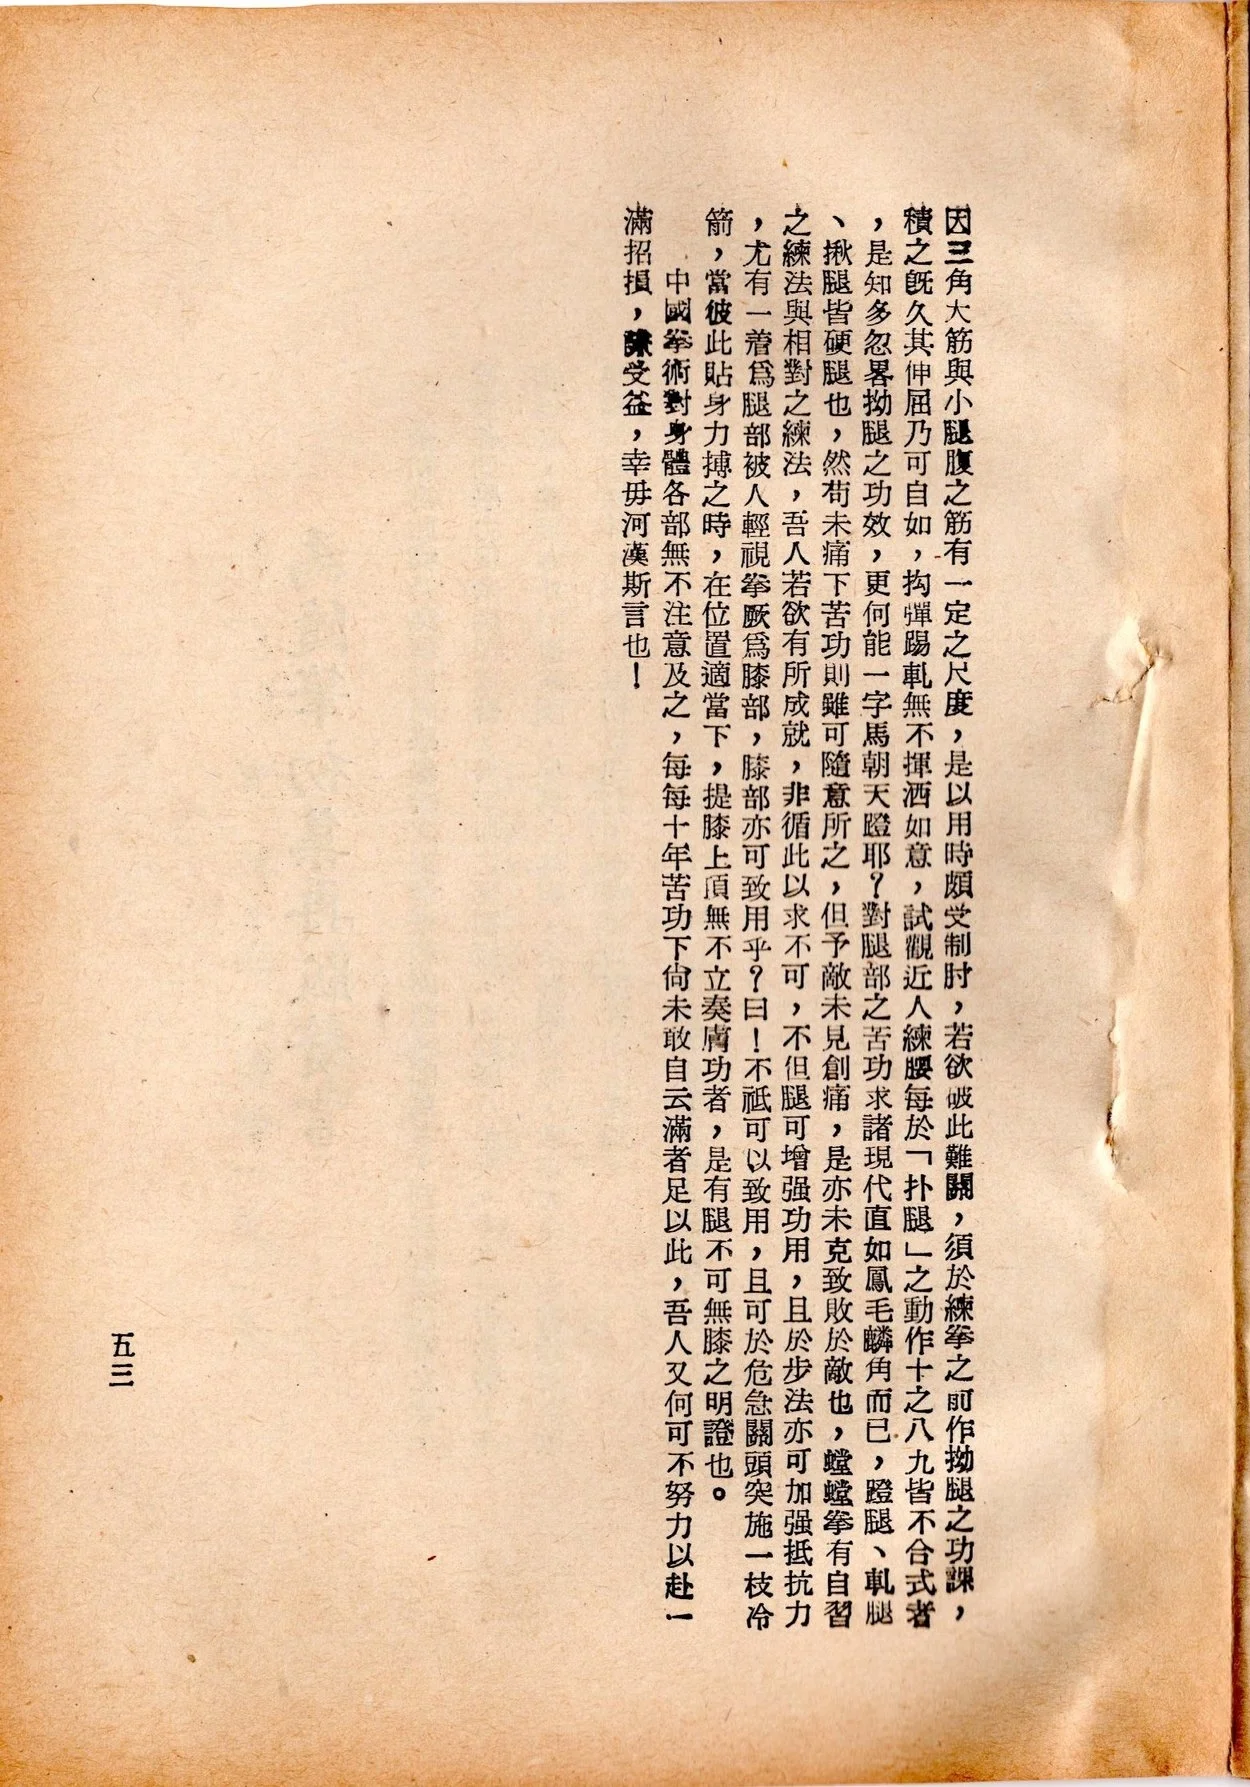 因三角大筋與小腿腹之筋有一定之尺度，是以用時頗受制肘，若欲破此難關，須於練拳之前作拗腿之功課，
積之旣久其伸屈乃可自如，抅彈踢軋無不揮洒如意，試觀近人練腰每於「扑腿」之動作十之八九皆不合式者
，是知多忽畧拗腿之功效，更何能一字馬朝天蹬耶？對腿部之苦功求諸現代直如鳳毛麟角而已，蹬腿、軋腿
、揪腿皆硬腿也，然苟未痛下苦功則雖可隨意所之，但予敵未見創痛，是亦未克致敗於敵也，螳螳拳有自習
之練法與相對之練法，吾人若欲有所成就，非循此以求不可，不但腿可增强功用，且於步法亦可加强抵抗力
，尤有一着爲腿部被人輕視拳厥爲膝部，膝部亦可致用乎？曰！不祇可以致用，且可於危急關頭突施一枝冷
箭，當彼此貼身力搏之時，在位置適當下，提膝上頂無不立奏膚功者，是有腿不可無膝之明證也。
中國拳術對身體各部無不注意及之，每每十年苦功下尙未敢自云滿者足以此，吾人又何可不努力以赴一
滿招損，謙受益，幸毋河漢斯言也！
五三